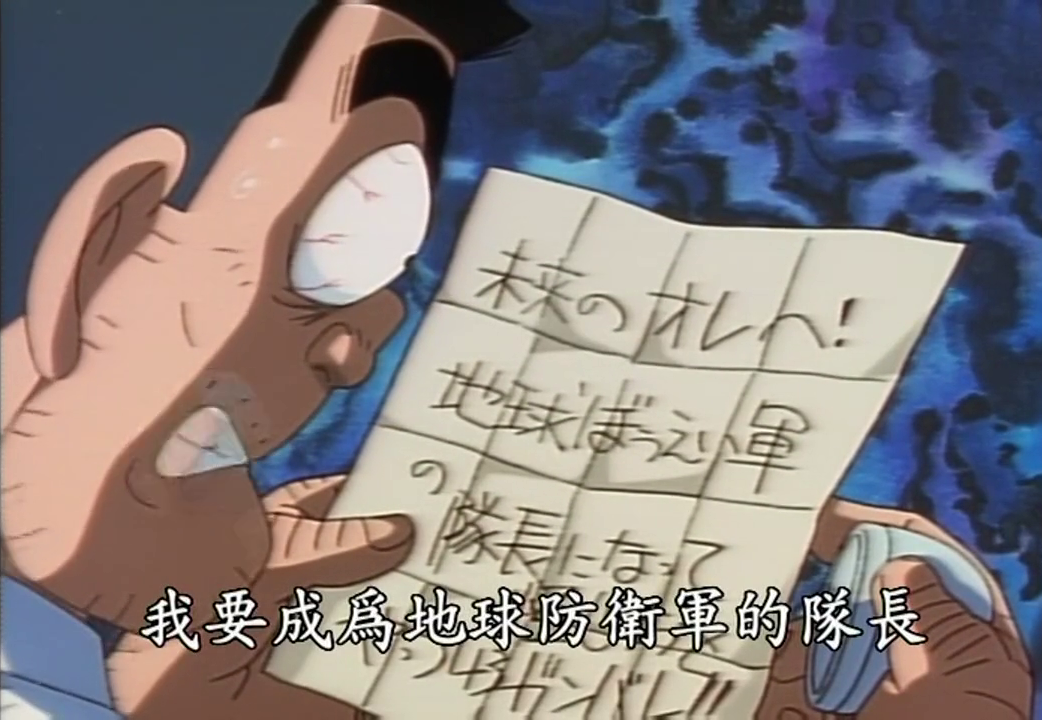 未来のオレへ!
地球ぼうえい軍
の隊長になって
ガンバレ!!
我要成爲地球防衛軍的隊長